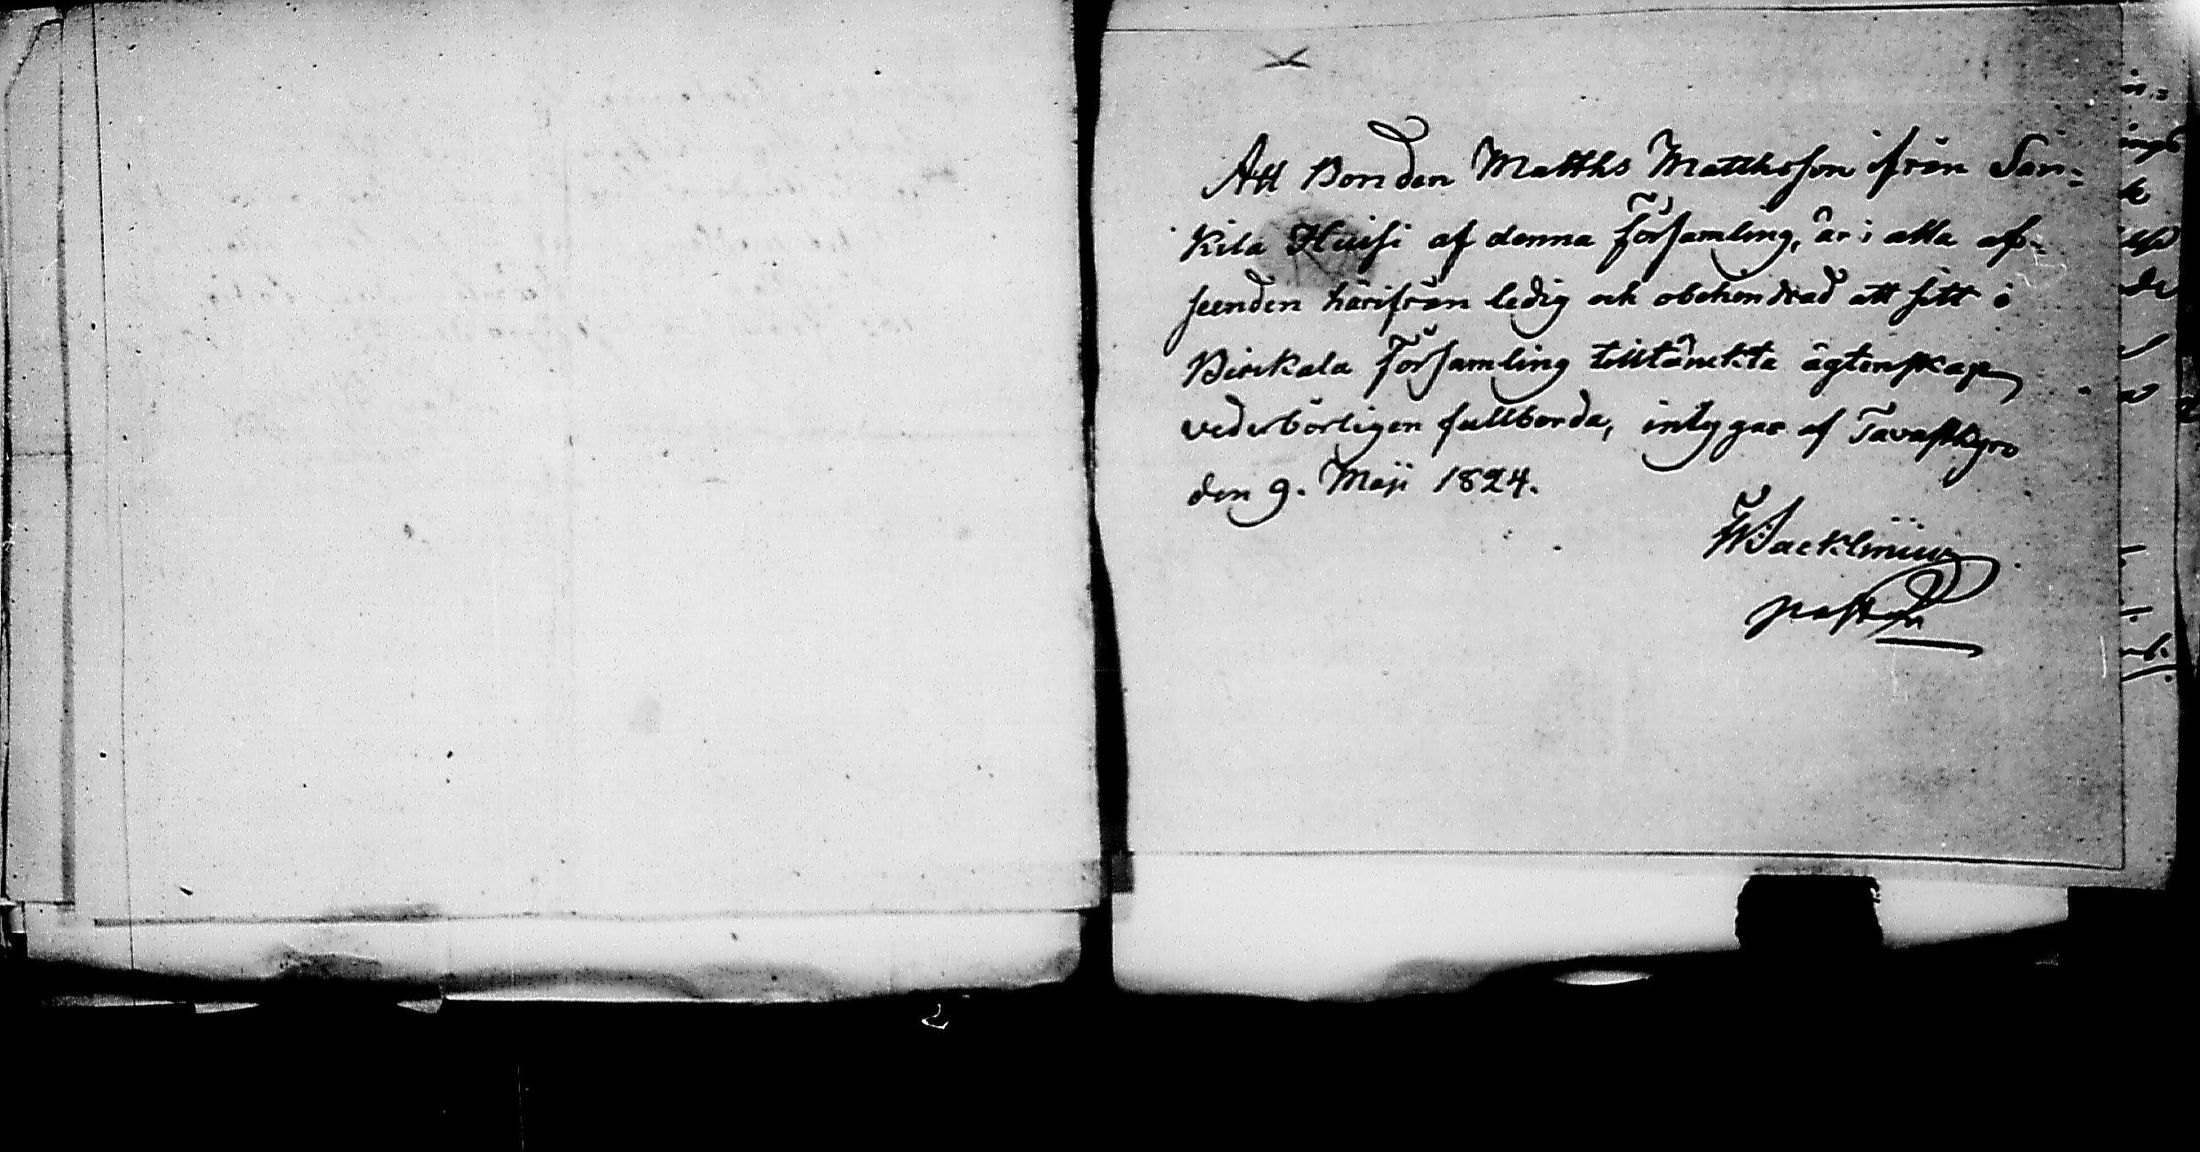 Att Bonden Matths Matthsson ifrån San-
kila Huisi af denna Församling, är i alla af-
seenden härifrån ledig och obehindrad att sitt i
Birkala Församling tilltänckta ägtenskap
vederbörligen fullborda, intygar af Tavastkyro
den 9. Maji 1824.
FWacklinius
pastor
2